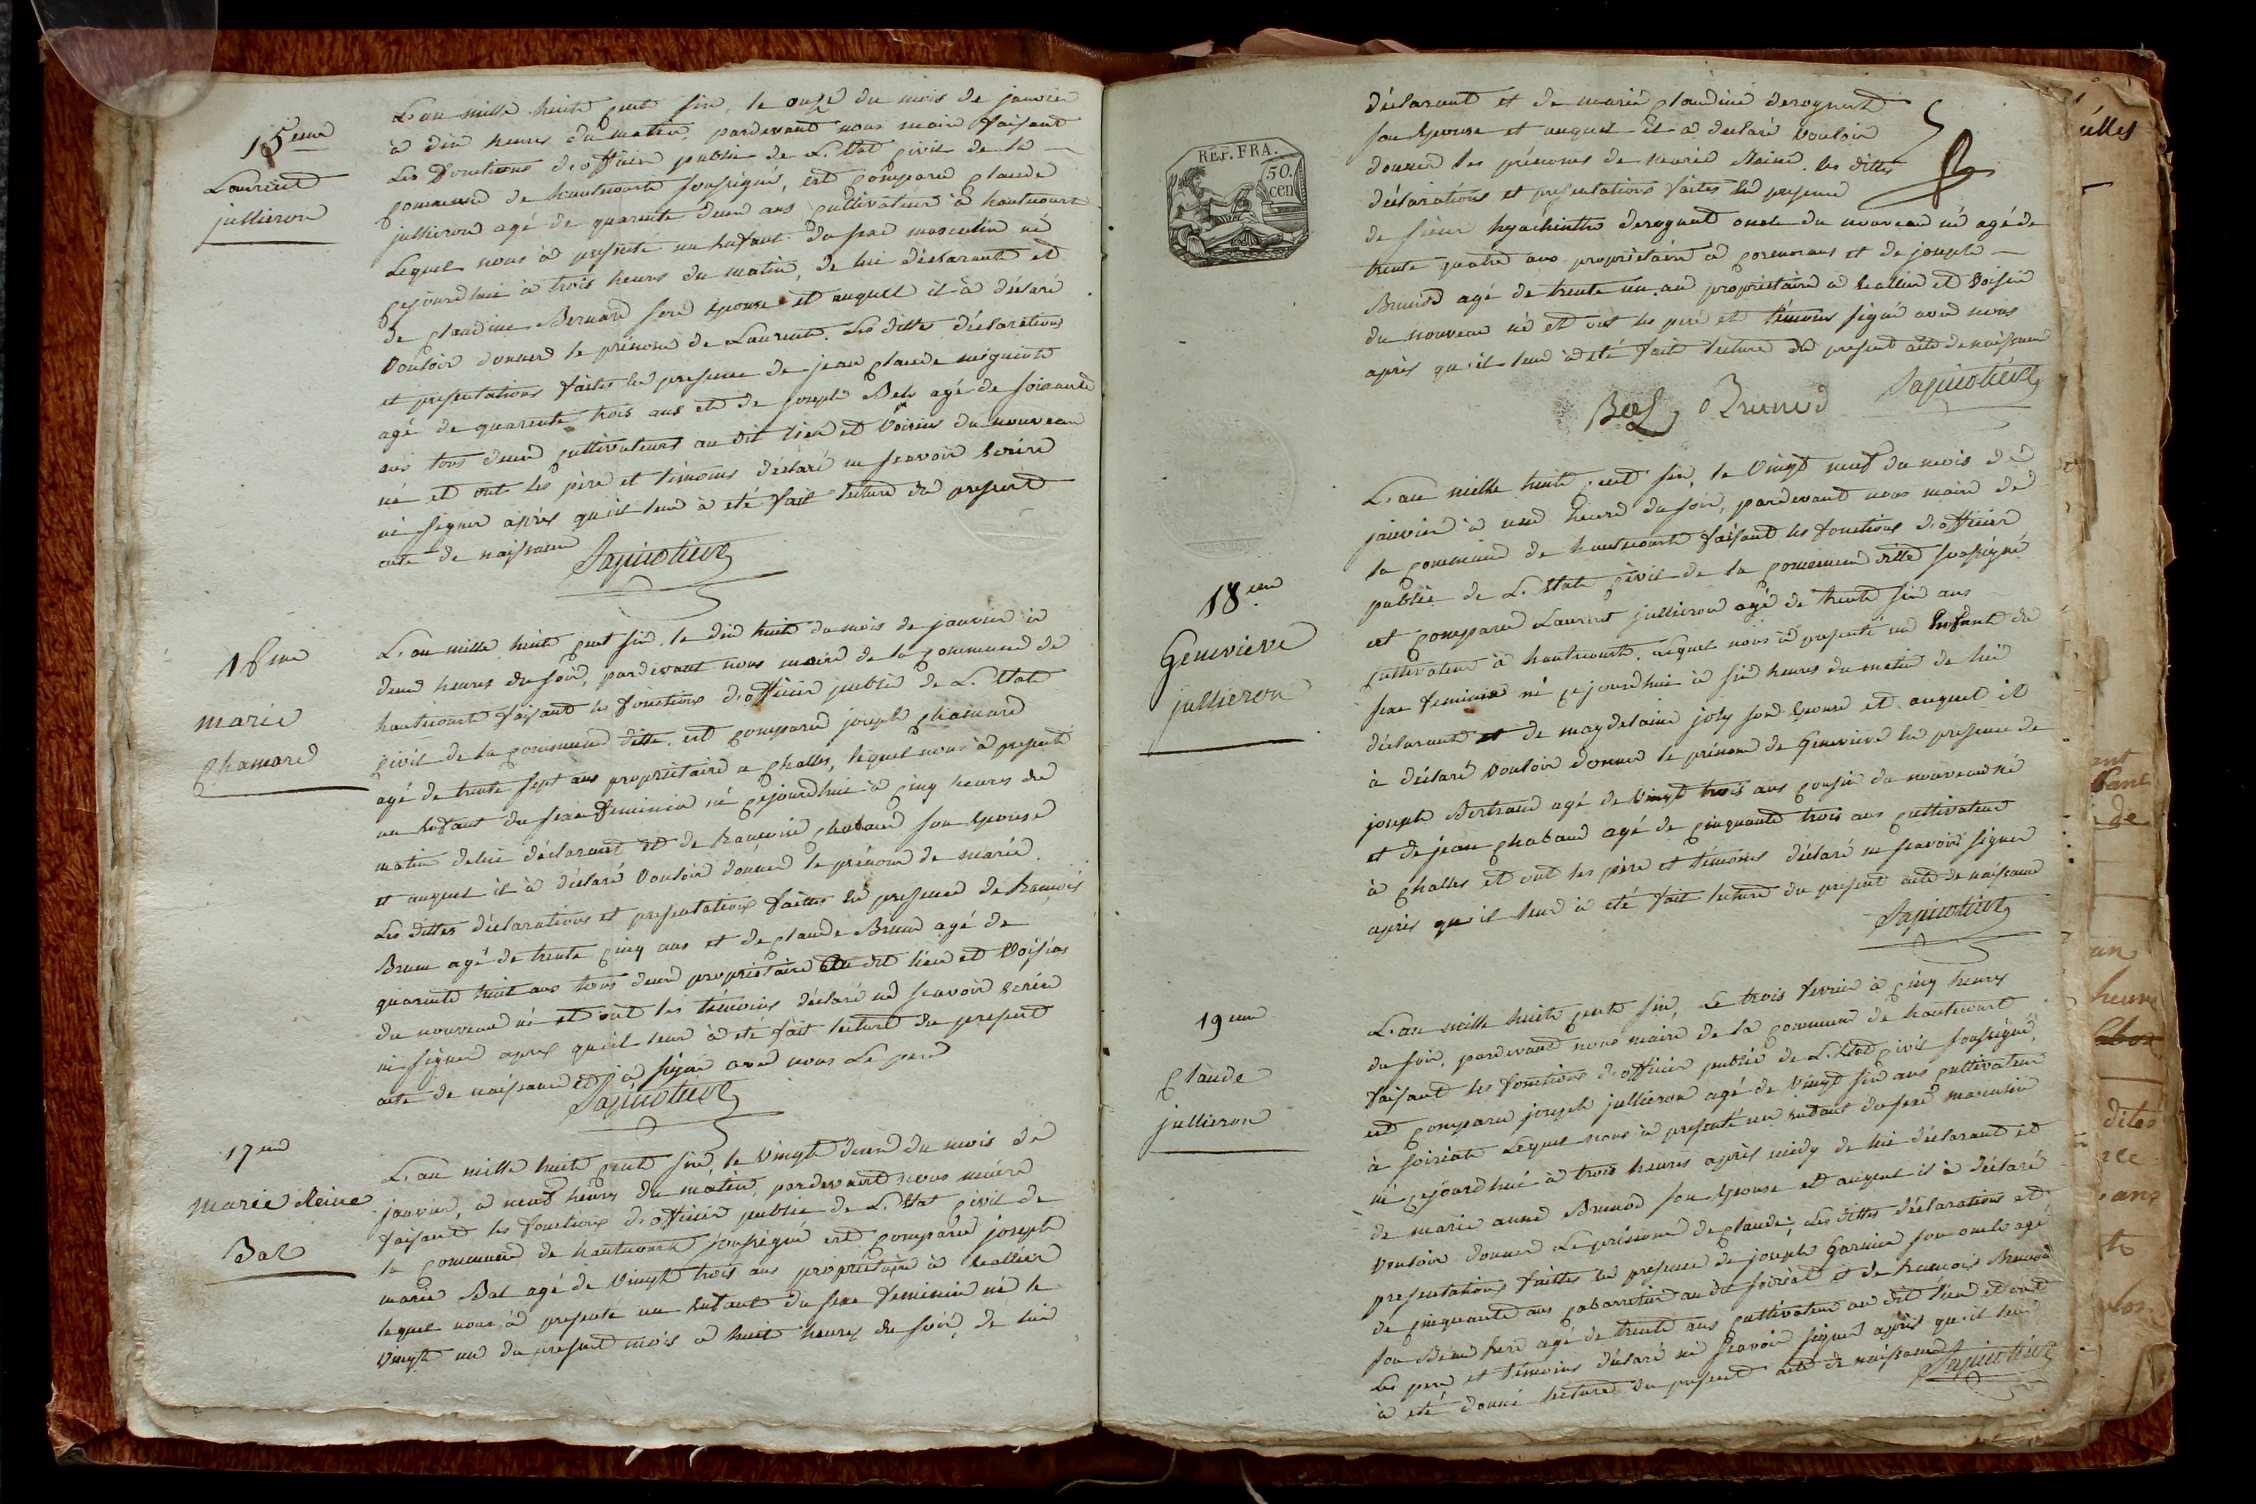 15eme
Laurent
jullieron
L'an mille huit cent six, le onze du mois de janvier
à dix heures du matin, pardevant nous maire faisant
Les fonctions d'officier public de L'Etat civil de la
commune de hautecourt soussigné, est comparu claude
jullieron agé de quarente deux ans cultivateur à hautecourt
Lequel nous à presenté un Enfant du sexe masculin né
cejourdhui à trois heures du matin, de lui déclarant et
de claudine Bernard son Epouse et auquel il à déclaré
Vouloir donner le prénom de Laurent. Les dittes déclarations
et presentations faites En presence de jean claude
agé de quarente trois ans et de joseph Bely agé de soixante
ans tous deux cultivateurs au dit lieu et Voisins du nouveau
né et ont les père et témoins déclaré ne scavoir Ecrire
ni signer après qu'il leur à eté fait lecture du present
acte de naissance
16eme
marie
chamard
L'an mille huit cent six, le dix huit du mois de janvier à
deux heures du soir, pardevant nous maire de la commune de
hautecourt faisant les fonctions d'officier public de L'Etat
civil de la commune ditte. est comparu joseph chamard
agé de trente sept ans proprietaire a challes, lequel nous à presenté
un Enfant du sexe feminin né cejourdhui à cinq heures du
matin de lui déclarant et de francoise chabaud son Epouse
et auquel il à déclaré Vouloir donner le prénom de marie.
Les dittes déclarations et presentations faittes En presence de francois
Brun agé de trente cinq ans et de claude Brun agé de
quarente huit ans tous deux proprietaire au dit lieu et Voisins
du nouveau né et ont les temoins déclaré ne scavoir Ecrire
ni signer apres qu'il leur à eté fait lecture du present
acte de naissance et à signé avec nous Le pere
17eme
marie Reine
Bal
L'an mille huit cent six, le vingt deux du mois de
janvier, à neuf heures du matin, pardevant nous maire
faisant les fonctions d'officier public de L'Etat civil de
la commune de hautecourt soussigné est comparu joseph
marie Bal agé de Vingt trois ans propriétaire à
lequel nous à presenté un Enfant du sexe feminin né le
Vingt un du present mois à huit heures du soir, de lui
REP. FRA.
50 cen
déclarant et de marie claudine derognat
son Epouse et auquel il à declaré Vouloir
donner les prénoms de marie Reine. les dittes
déclarations et presentations faites En presence
de sieur hyachinthe derognat oncle du nouveau né agé de
trente quatre ans propriétaire à cormorans et de joseph
Brunod agé de trente un an proprietaire à et Voisin
du nouveau né et ont les pere et témoins signé avec nous
après qu'il leur à eté fait lecture du present acte de naissance
Bal Brunod
18eme
Genevieve
jullieron
L'an mille huit cent six, le Vingt neuf du mois de
janvier à une heure du soir, pardevant nous maire de
la commune de hautecourt faisant les fonctions d'officier
public de L'Etat civil de la commune ditte soussigné
est comparu Laurent jullieron agé de trente six ans
cultivateur à hautecourt. Lequel nous à presenté un Enfant du
sexe feminin né cejourdhui à six heures du matin de lui
déclarant et de magdelaine joly son Epouse et auquel il
à déclaré Vouloir donner le prénom de Genevieve En presence de
joseph Bertrand agé de Vingt trois ans cousin du nouveau né
et de jean chabaud agé de cinquante trois ans cultivateur
à challes et ont les père et témoins déclaré ne scavoir signer
après qu'il leur à eté fait lecture du present acte de naissance
19eme
claude
jullieron
L'an mille huit cent six, Le trois fevrier à cinq heures
du soir, pardevant nous maire de la commune de hautecourt
faisant les fonctions d'officier public de L'Etat civil soussigné,
est comparu joseph jullieron agé de Vingt six ans cultivateur
à soiriat Lequel nous à presenté un Enfant du sexe masculin
né cejourdhui à trois heures après midy de lui déclarant et
de marie anne Brunod son Epouse et auquel il à déclaré
Vouloir donner Le prénom de claude, Les dittes déclarations et
presentations faittes En presence de joseph Garnier son oncle agé
de cinquante ans cabarretier au dit soiriat et de francois Brunod
son Beau frere agé de trente ans cultivateur au dit lieu et ont
Les pere et témoins déclaré ne scavoir signer après qu'il leur
à eté donné lecture du present acte de naissance